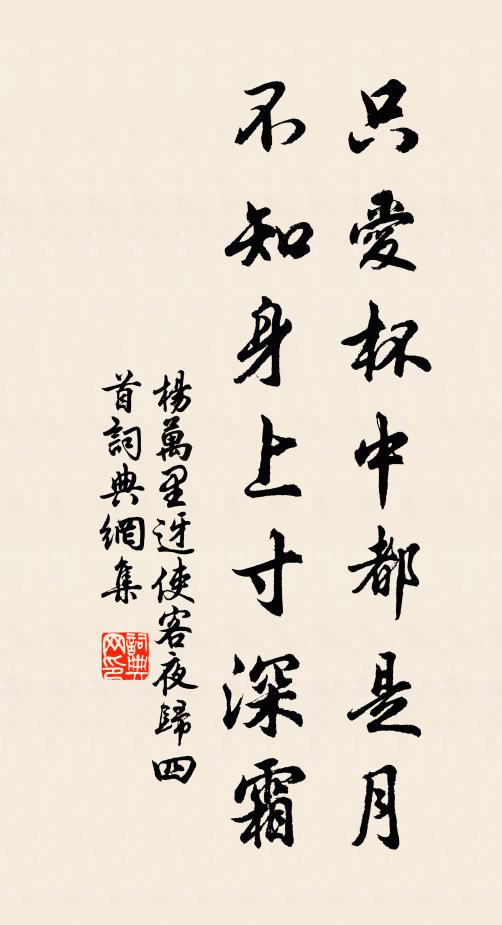 只愛杯中都是月
不知身上寸深霜
楊萬里迓使客夜歸四
首詞典網集
詞典
网印